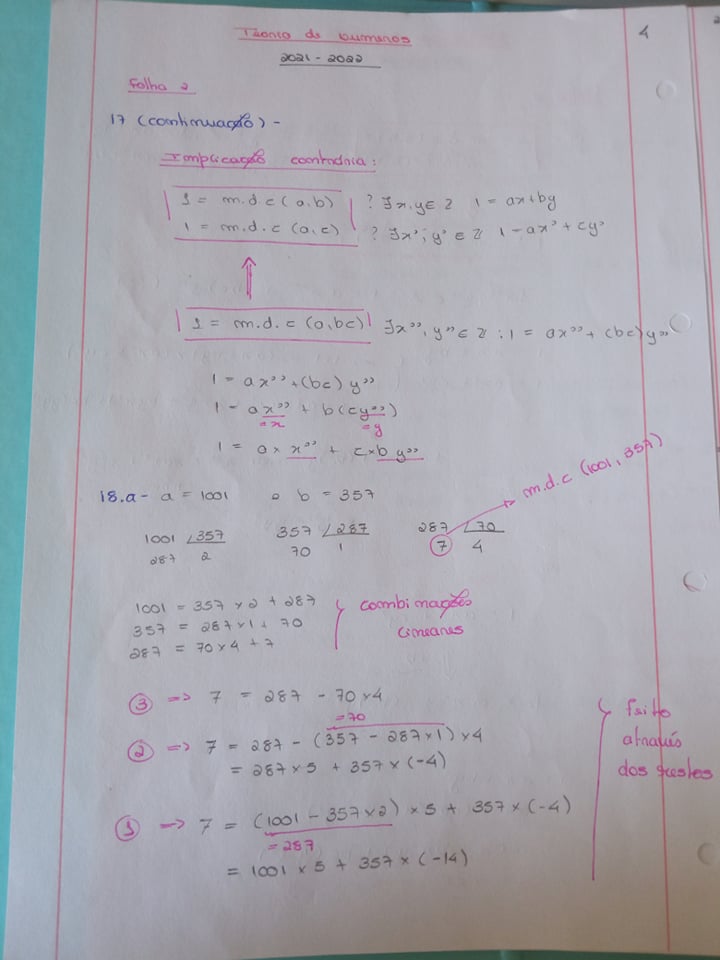 Teoria de numeros
4
2021 - 2022
Folha 2
17 (continuação) -
Implicação contrária:
1 = m.d.c (a,b) ? ∃x,y ∈ ℤ 1 = ax+by
1 = m.d.c (a,c) ? ∃x', y' ∈ ℤ 1 = ax' + cy'
⇑
1 = m.d.c (a,bc) ∃x'', y'' ∈ ℤ : 1 = ax'' + (bc)y''
1 = ax'' + (bc) y''
1 = ax'' + b(cy'')
= x = y
1 = a × x'' + c×b y''
18.a - a = 1001 e b = 357
m.d.c (1001, 357)
1001 ∠357 357 ∠287 287 ∠70
287 2 70 1 7 4
1001 = 357 × 2 + 287
357 = 287 × 1 + 70
287 = 70 × 4 + 7
combinações
lineares
③ => 7 = 287 - 70 × 4
= 70
② => 7 = 287 - (357 - 287 × 1) × 4
= 287 × 5 + 357 × (-4)
① => 7 = (1001 - 357 × 2) × 5 + 357 × (-4)
= 287
= 1001 × 5 + 357 × (-14)
feito
através
dos restos